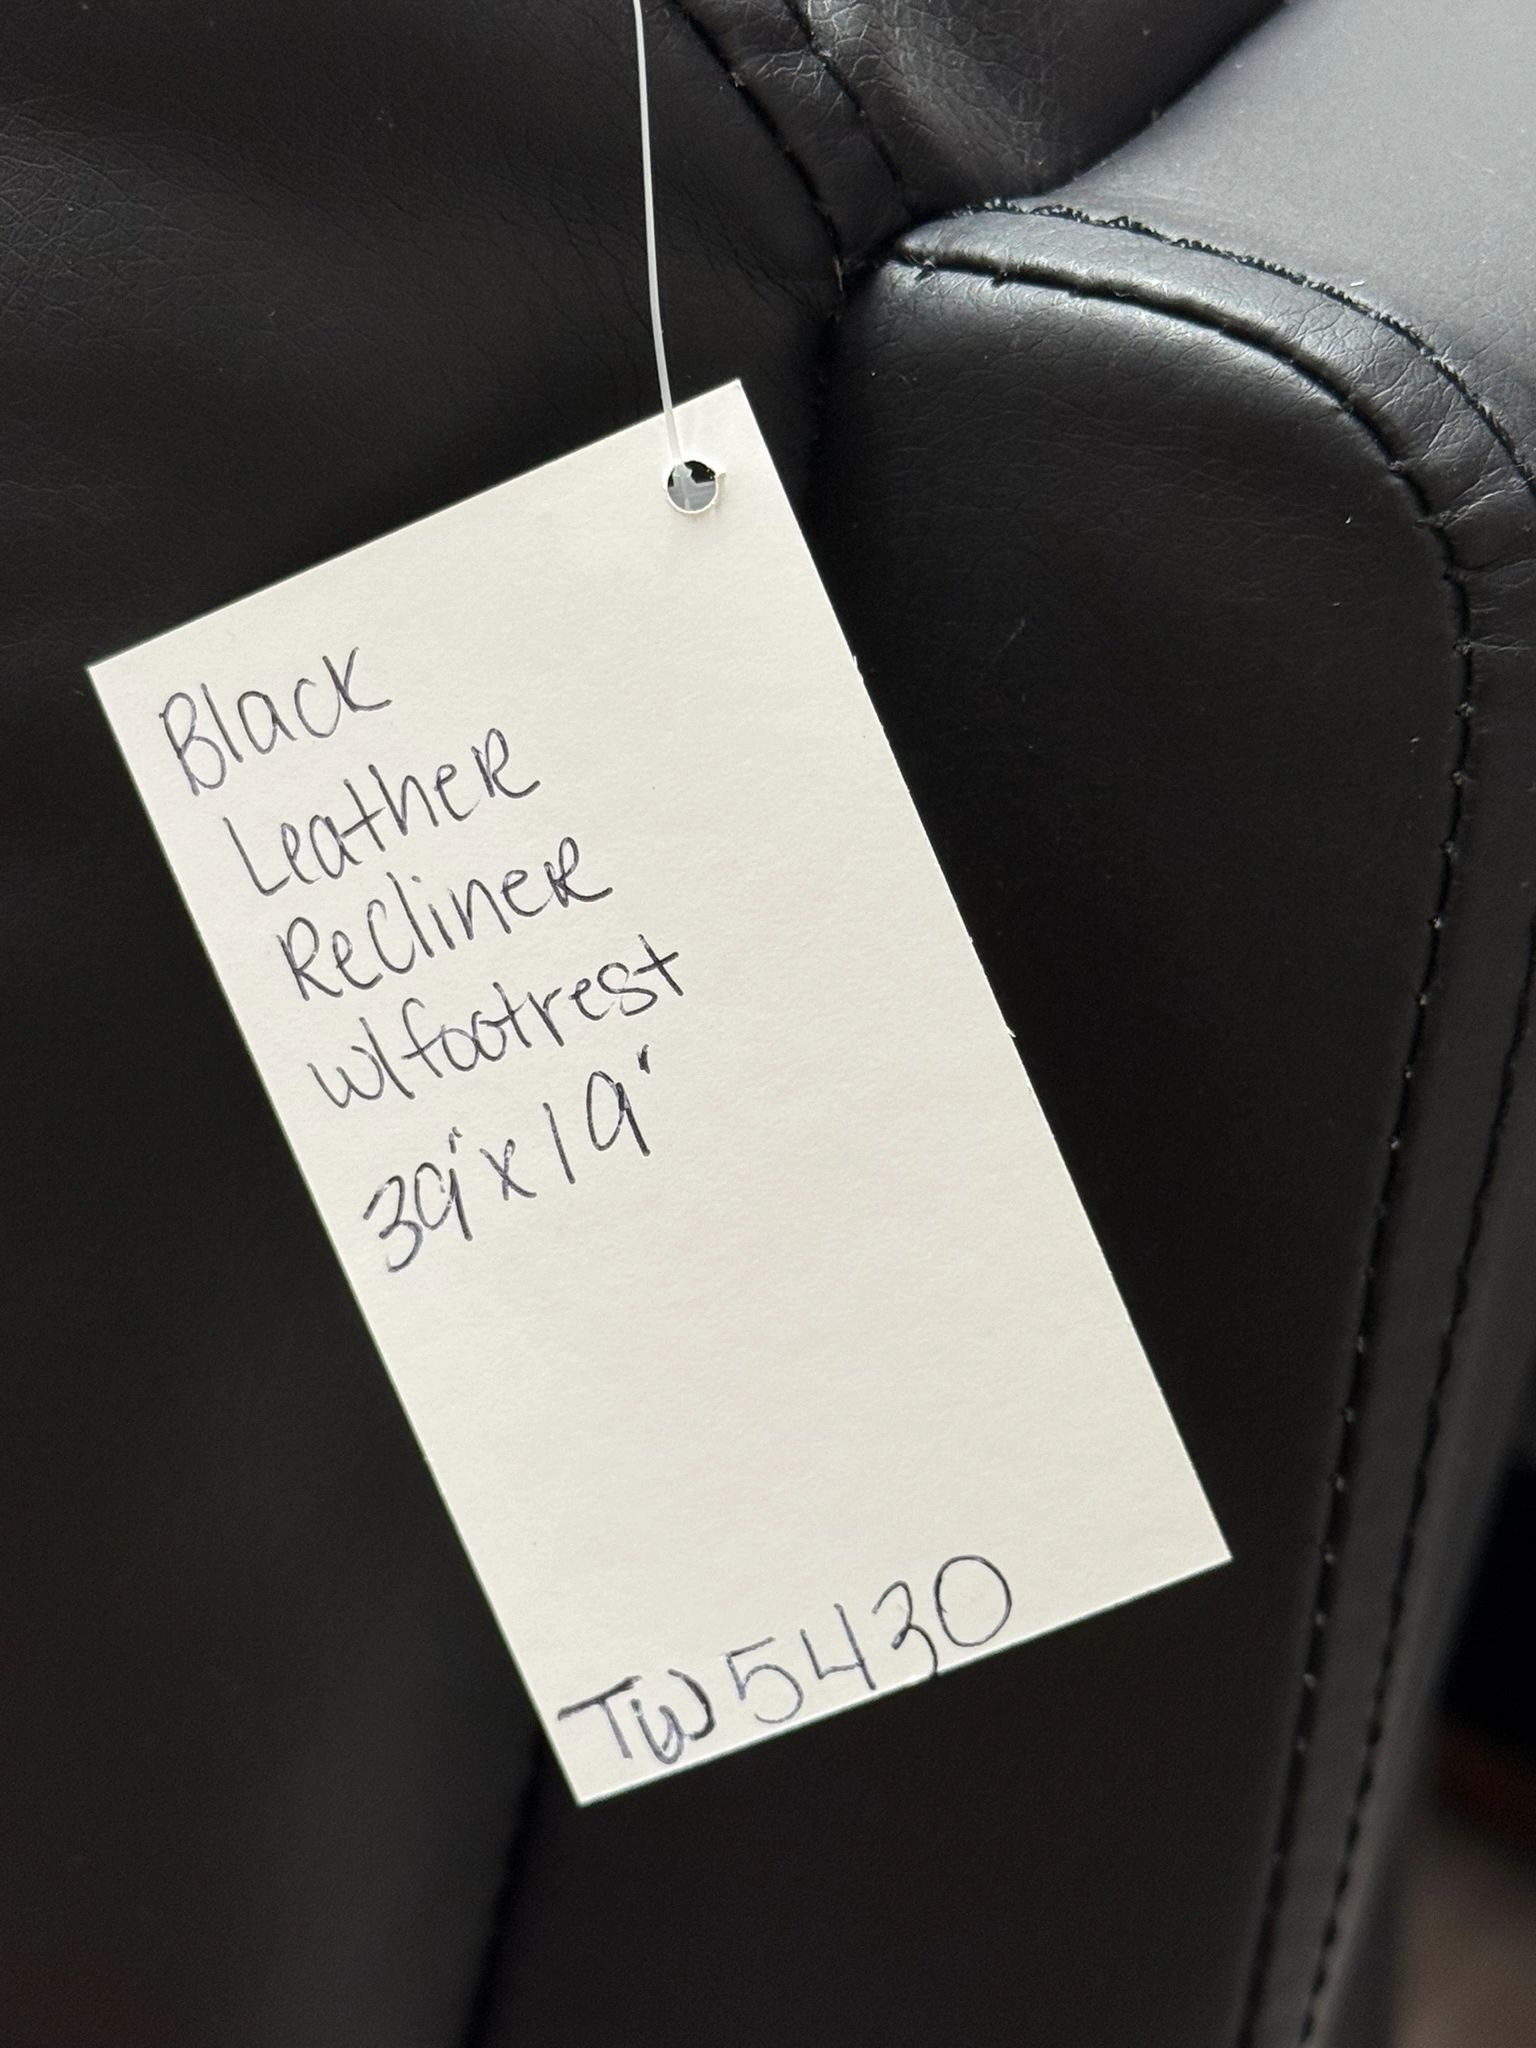 Black
Leather
Recliner
w/footrest
39" x 19"
TW5430